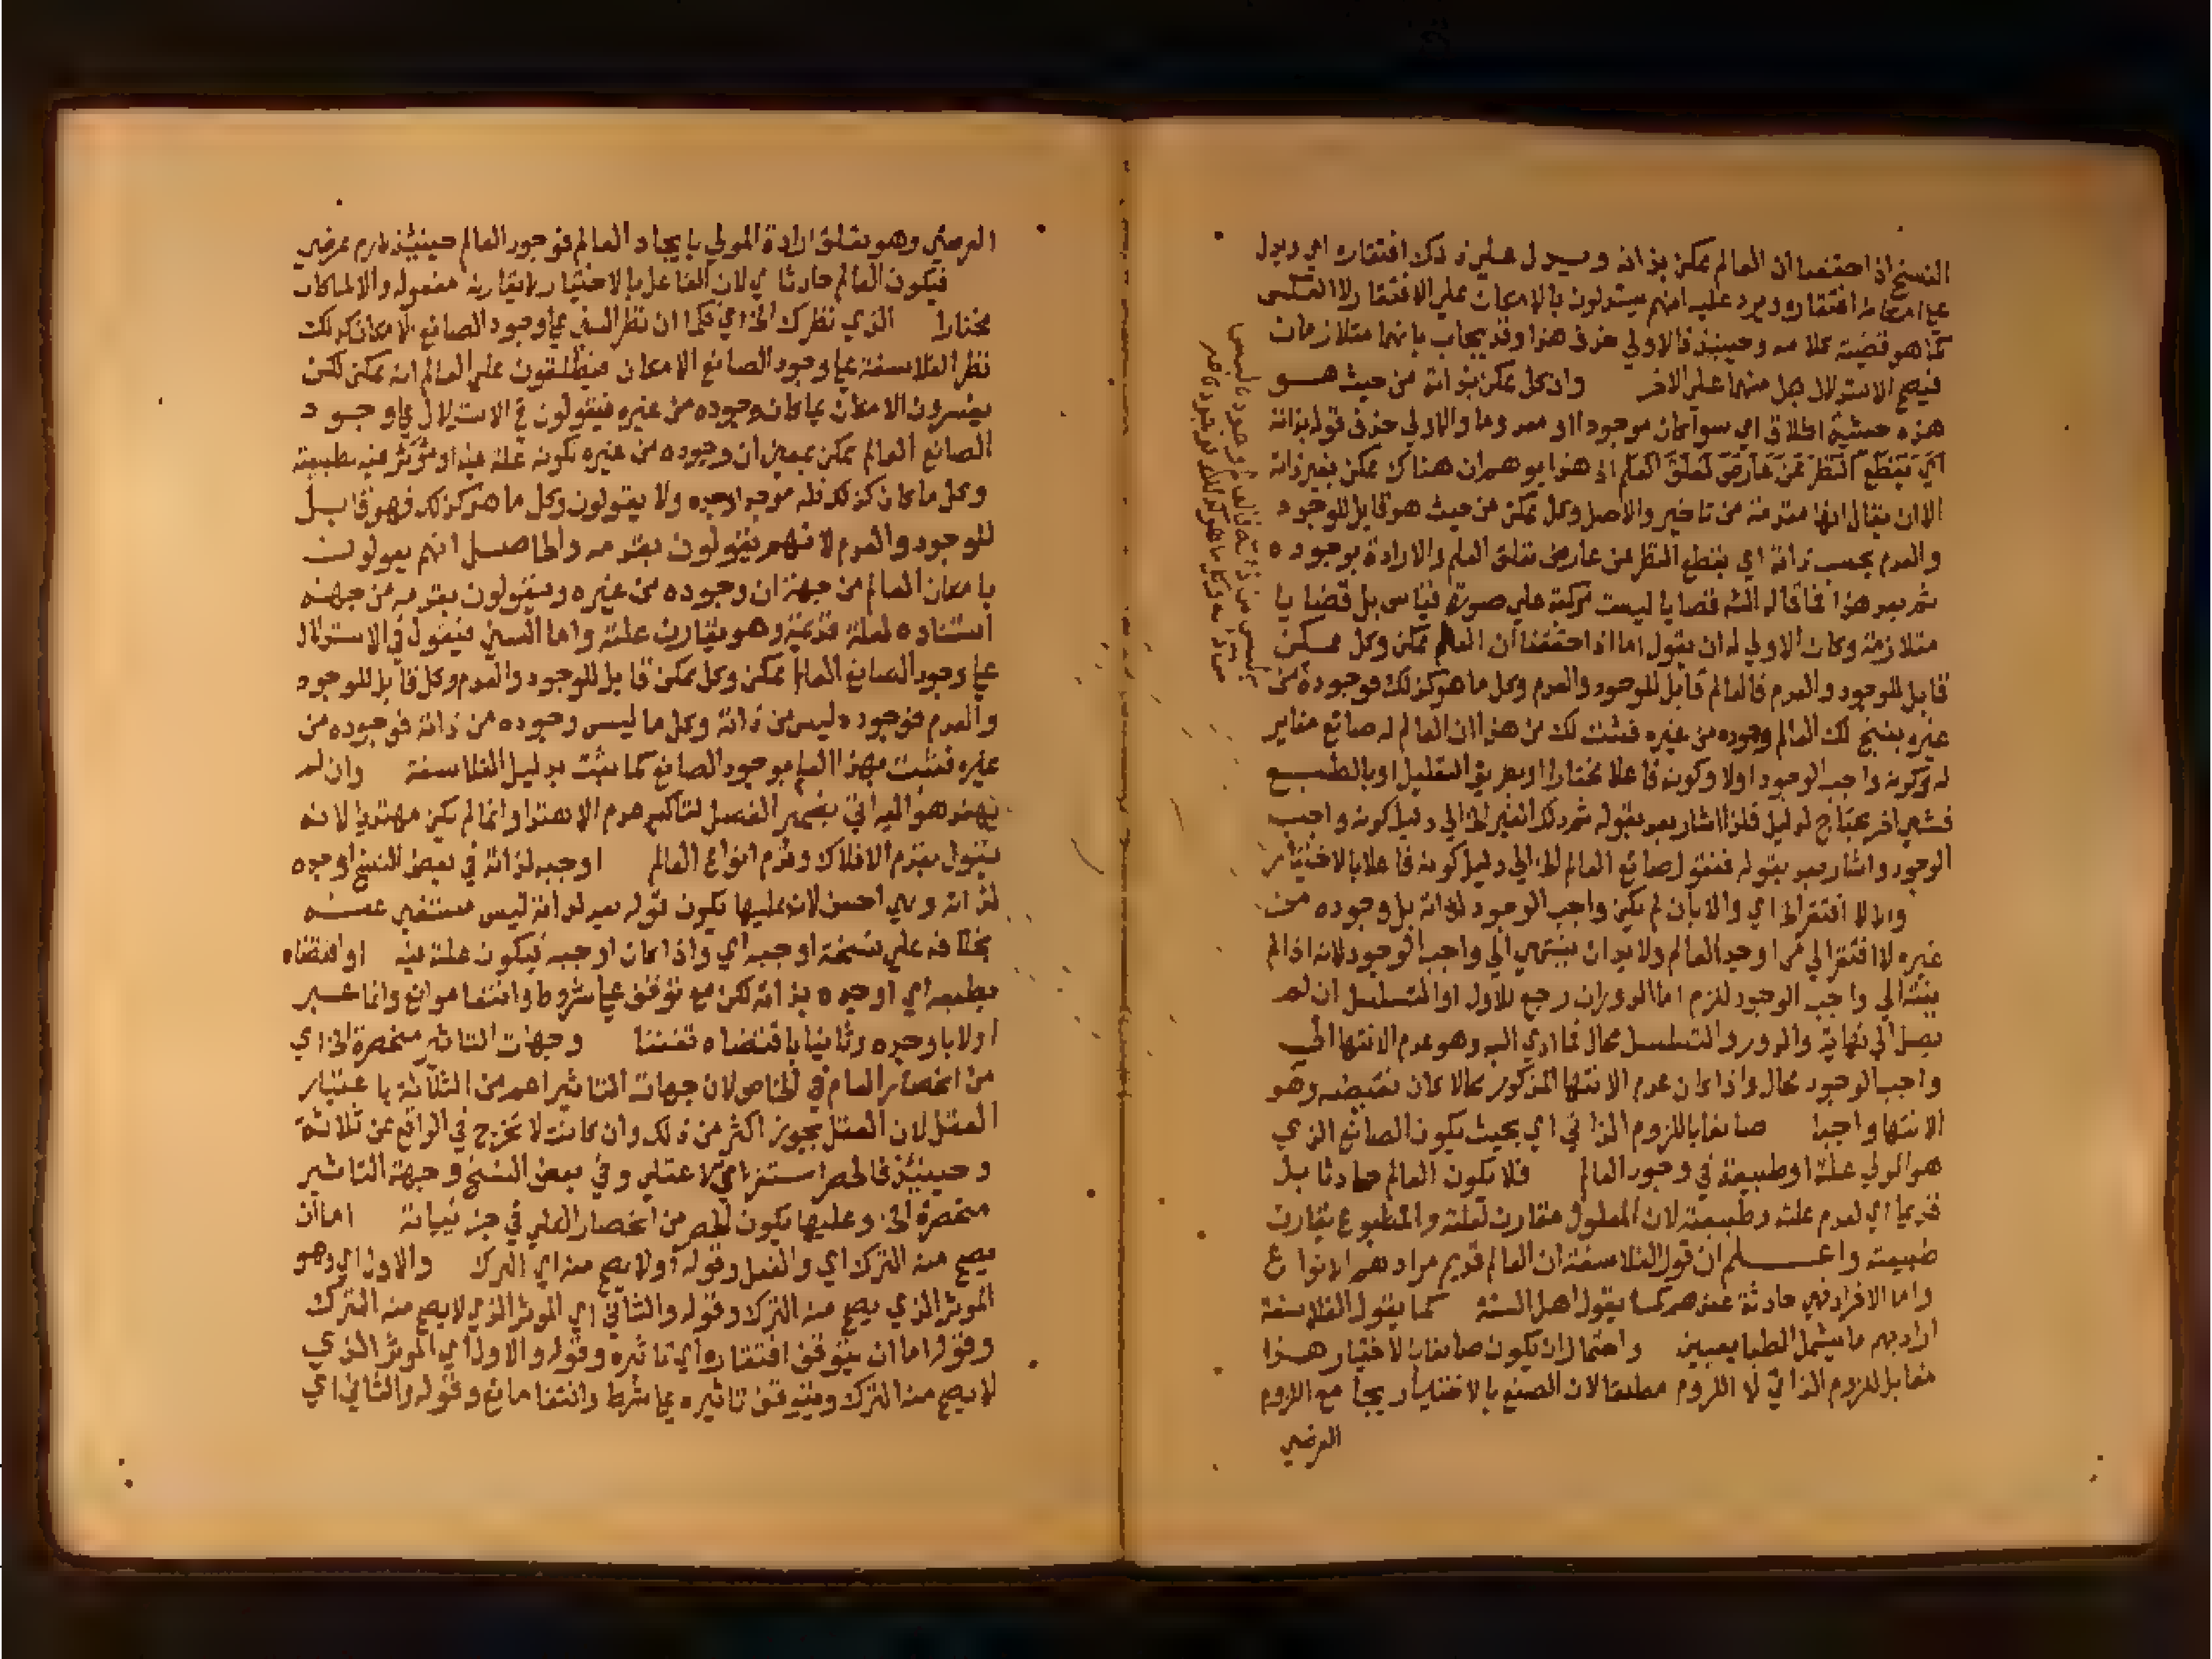 النسخ اذ احتفنا ان العالم ممكن بذاته ويدل على ذلك افتقاره اي ويدل
على امكانه افتقاره ويرد عليه انهم يستدلون بالامكان على الافتقار لا العكس
كما هو قضية كلامه وحينيذ فالاولي حذف هذا وقد يجاب بانهما متلازمان
فيصح الاستدلال بكل منهما على الاخر وان كل ممكن بذاته من حيث هو
هذه حيثية اطلاق اي سوا كان موجودا او معدوما والاولي حذف قوله بذاته
اي بقطع النظر عن عارض تعلق العلم الخ هذا يوهم ان هناك ممكن بغير ذاته
الا ان يقال انها مقدمة من تاخير والاصل وكل ممكن من حيث هو قابل للوجود
والعدم بحسب ذاته اي بقطع النظر عن عارض تعلق العلم والارادة بوجوده
ثم بعد هذا فما قاله الشه قضايا ليست مركبة على صورة قياس بل قضايا
متلازمة وكان الاولي له ان يقول اما اذا احتفنا ان العالم ممكن وكل ممكن
قابل للوجود والعدم فالعالم قابل للوجود والعدم وكل ما هو كذلك فوجوده من
غيره ينتج لك العالم وجوده من غيره فثبت لك من هذا ان العالم له صانع مغاير
له وكونه واجب الوجود اولا وكونه فاعلا مختارا او بطريق التعليل او بالطبع
فشي اخر يحتاج لدليل فلذا اشار بعد بقوله ثم ذلك الغير الخ الي دليل كونه واجب
الوجود واشار بعد بقوله فنقول صانع العالم الخ الي دليل كونه فاعلا بالاختيار
والا لافتقر الخ اي والا بان لم يكن واجب الوجود لذاته بل وجوده من
غيره لافتقر الي من اوجد العالم ولا بد ان ينتهي الي واجب الوجود لانه اذا لم
ينته الي واجب الوجود للزم اما الدور ان رجع للاول او التسلسل ان لم
يصل الي نهاية والدور والتسلسل محال فما ادي اليه وهو عدم الانتها الي
واجب الوجود محال واذا كان عدم الانتها المذكور محالا كان نقيضه وهو
الانتها واجبا صانعا باللزوم الذاتي اي بحيث يكون الصانع الذي
هو المولي علة او طبيعة في وجود العالم فلا يكون العالم حادثا بل
قديما اي لقدم علته وطبيعته لان المعلول مقارن لعلته والمطبوع يقارن
طبيعته واعلم ان قول الفلاسفة ان العالم قديم مرادهم الانواع
واما الافراد فهي حادثة عندهم كما يقول اهل السنة كما يقول الفلاسفة
اراد بهم ما يشمل الطبايعيين واحتمال ان يكون صانعا بالاختيار هذا
مقابل للزوم الذاتي لا اللزوم مطلقا لان الصنع بالاختيار يجا مع اللزوم
العرضي
العرضي وهو تعلق ارادة المولي بايجاد العالم فوجود العالم حينيذ لازم عرضي
فيكون العالم حادثا اي لان الفاعل بالاختيار لا يقارنه مفعوله والا لما كان
مختارا الذي نظر ك الخ اي فكما ان نظر السني على وجود الصانع الامكان كذلك
نظر الفلاسفة على وجود الصانع الامكان فيطلقون على العالم انه ممكن لكن
يفسرون الامكان بما كان وجوده من غيره فيقولون في الاستدلال على وجود
الصانع العالم ممكن بمعني ان وجوده من غيره لكونه علة فيه او موثر فيه بطبيعته
وكل ما كان كذلك فله موجد اوجده ولا يقولون وكل ما هو كذلك فهو قابل
للوجود والعدم لانهم يقولون بقدمه والحاصل انهم يقولون
بامكان العالم من جهة ان وجوده من غيره ويقولون بقدمه من جهة
استناده لعلة قديمة وهو يقارن علته واما السني فيقول في الاستدلال
على وجود الصانع العالم ممكن وكل ممكن قابل للوجود والعدم وكل قابل للوجود
والعدم فوجوده ليس من ذاته وكل ما ليس وجوده من ذاته فوجوده من
غيره فثبت بهذا العلم بوجود الصانع كما ثبت بدليل الفلاسفة وان لم
يهتد هو اليه اتي بضمير الفصل لتاكيد عدم الاهتدا وانما لم يكن مهتديا لانه
يقول بقدم الافلاك وقدم انواع العالم اوجبه لذاته في بعض النسخ اوجده
لذاته وهي احسن لان عليها يكون قوله بعد لذاته ليس مستغني عنه
بخلافه على نسخة اوجبه اي واذا كان اوجبه فيكون علة فيه او اقتضاه
بطبعه اي اوجده بذاته لكن مع توقف على شروط وانتفا موانع وانما عبر
اولا باوجده وثانيا باقتضاه تفننا وجهات التاثير منحصرة الخ اي
من انحصار العام في الخاص لان جهات التاثير اعم من الثلاثة باعتبار
العقل لان العقل يجوز اكثر من ذلك وان كانت لا تخرج في الواقع عن ثلاثة
وحينيذ فالحصر استقرائي لا عقلي وفي بعض النسخ وجهة التاثير
منحصرة الخ وعليها يكون الحصر من انحصار الكلي في جزئياته اما ان
يصح منه الترك اي والفعل وقوله اولا يصح منه اي الترك والاول اي وهو
الموثر الذي يصح منه الترك وقوله والثاني اي الموثر الذي لا يصح منه الترك
وقوله اما ان يتوقف افتقاره اي تاثيره وقوله والاول اي الموثر الذي
لا يصح منه الترك ويتوقف تاثيره على شرط وانتفا مانع وقوله والثاني اي